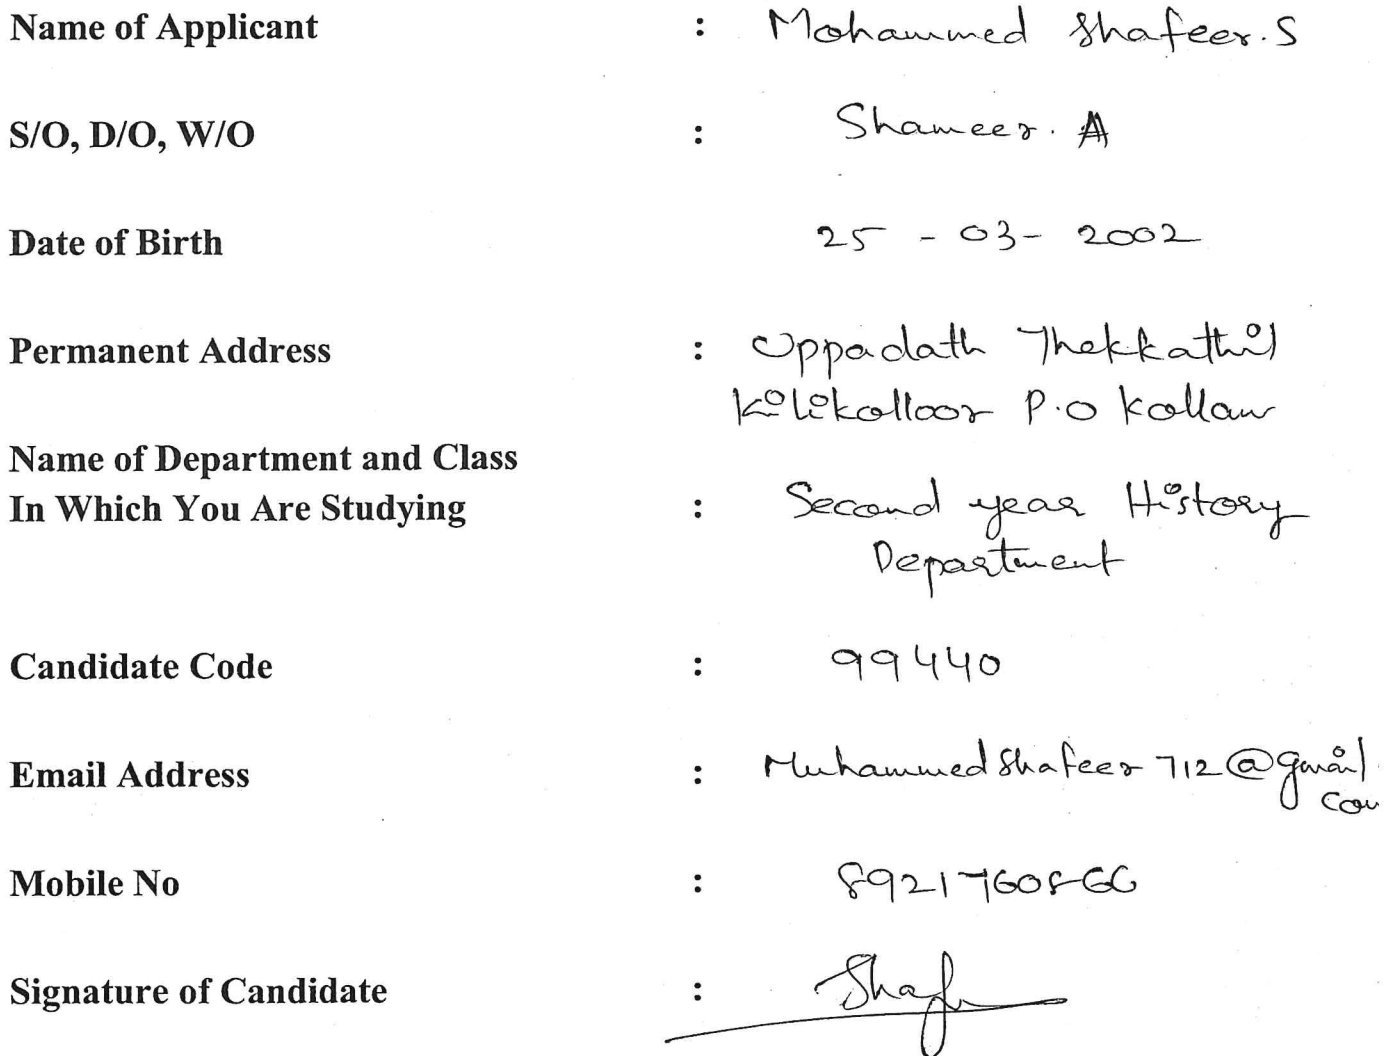 Name of Applicant : Mohammed Shafeer.S
S/O, D/O, W/O : Shameer. A
Date of Birth 25 - 03 - 2002
Permanent Address : Uppadath Thekkathil
Kilikolloor P.O Kollam
Name of Department and Class
In Which You Are Studying : Second year History
Department
Candidate Code : 99440
Email Address : Muhammedshafeer712@gmail.
com
Mobile No : 8921760866
Signature of Candidate : Shafe